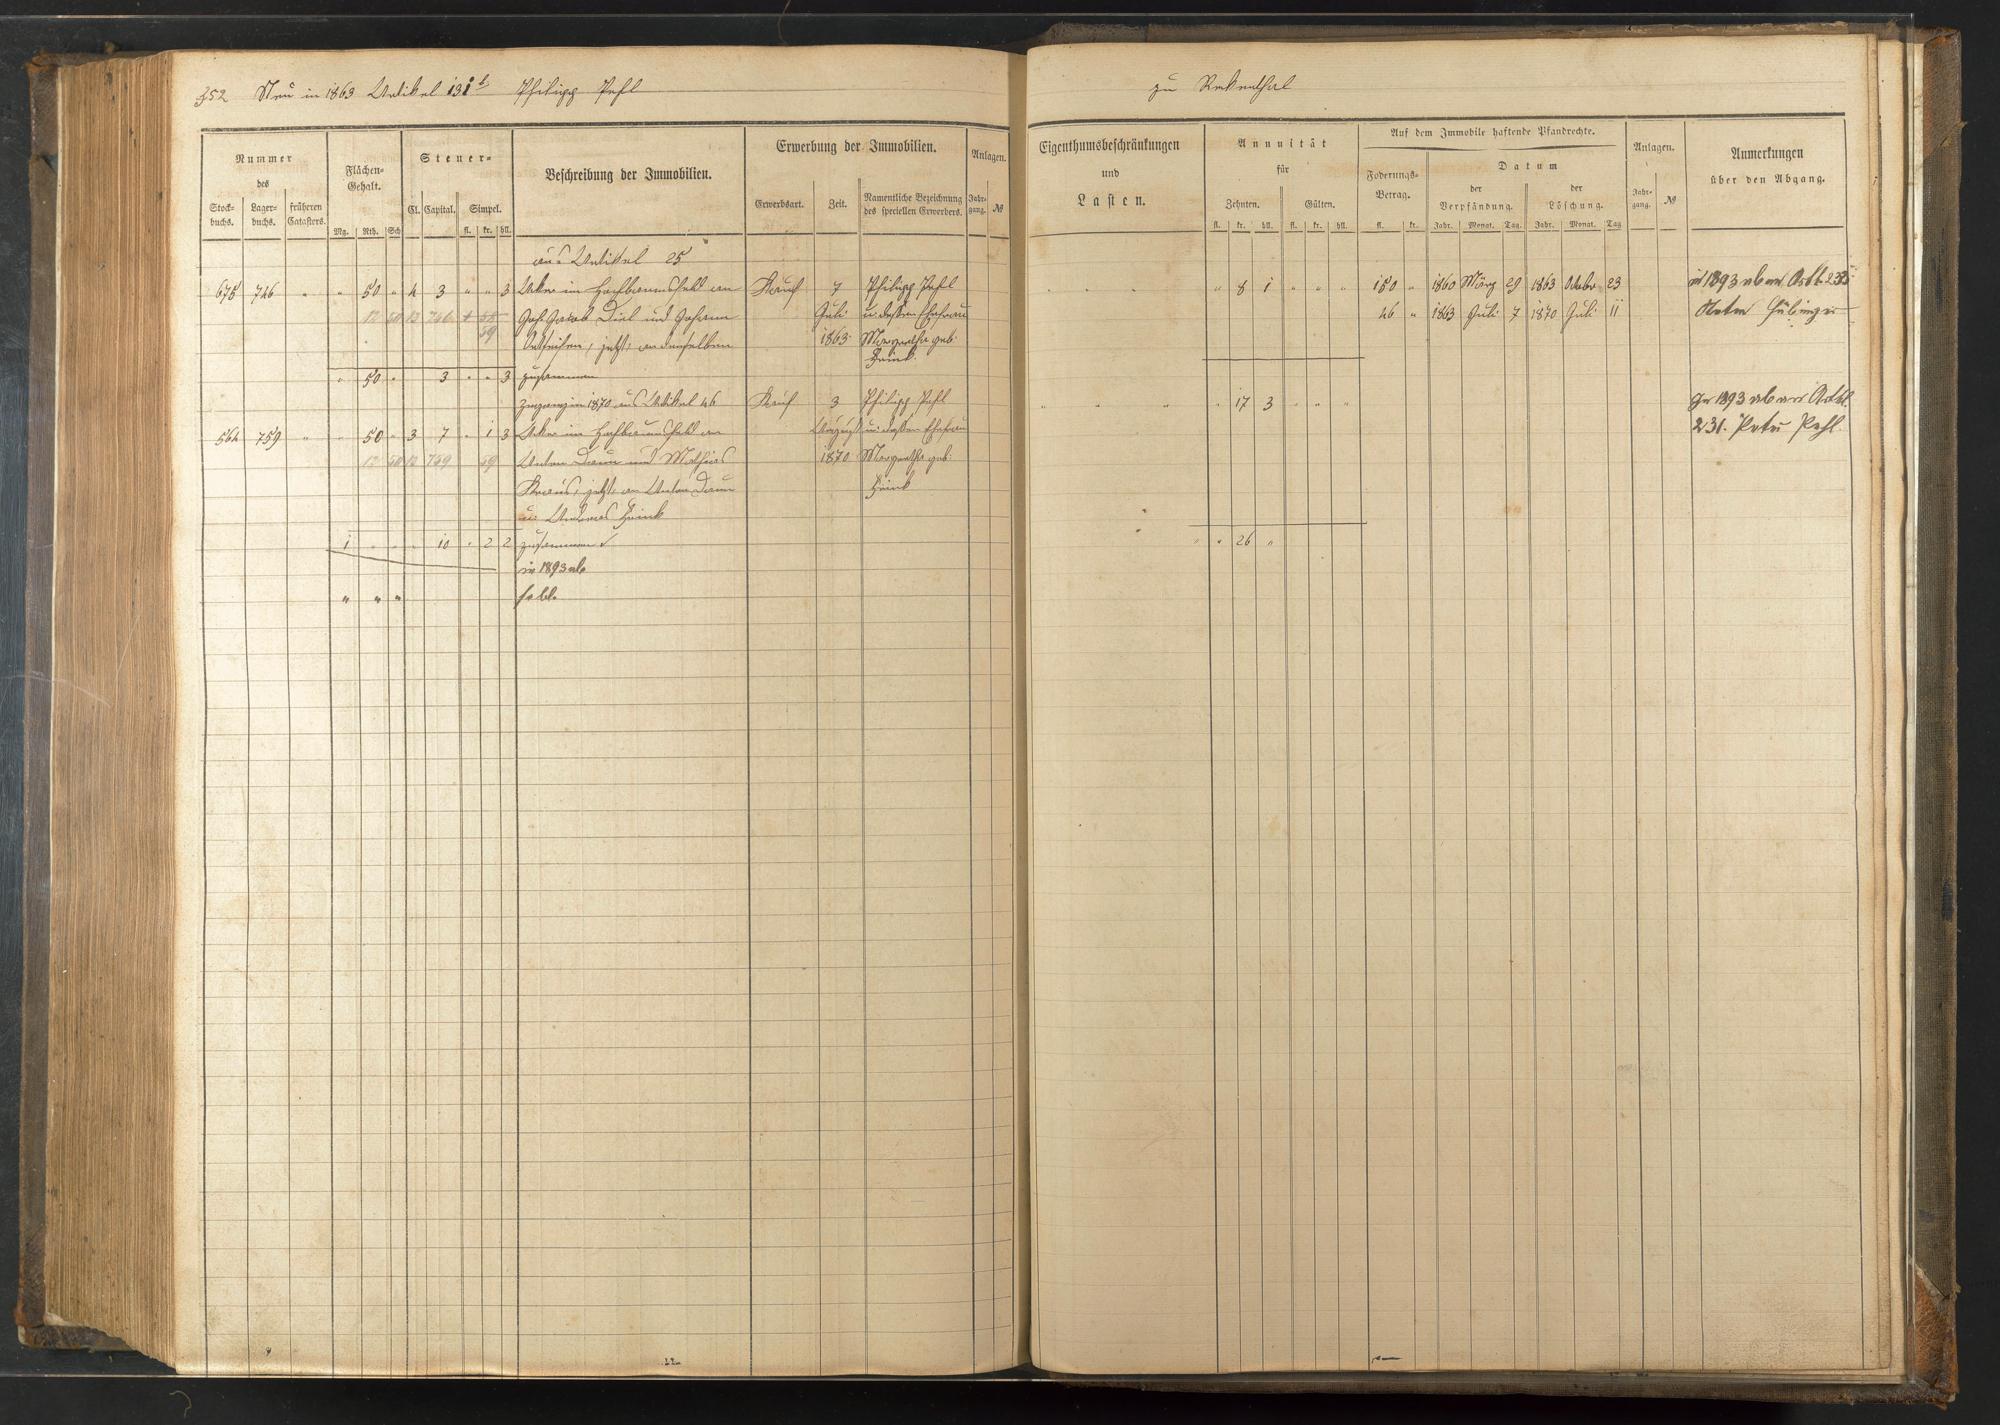 352 Neu in 1863 Artikel 131 b. Philipp Pehl
zu Reckenthal
Nummer
des
Stock-
buchs.
Lager-
buchs.
früheren
Catasters.
Flächen-
Gehalt.
Mg. Rth. Sch
Steuer-
Cl. Capital. Simpel.
fl. kr. hll.
Beschreibung der Immobilien.
Erwerbung der Immobilien.
Erwerbsart. Zeit.
Namentliche Bezeichnung
des speciellen Erwerbers.
Anlagen.
Jahr-
gang. №
Eigenthumsbeschränkungen
und
Lasten.
Annuität
für
Zehnten. Gülten.
fl. kr. hll. fl. kr. hll.
Auf dem Immobile haftende Pfandrechte.
Foderungs-
Betrag.
fl. kr.
Datum
der
Verpfändung.
der
Löschung.
Jahr. Monat. Tag. Jahr. Monat. Tag
Anlagen.
Jahr-
gang. №
Anmerkungen
über den Abgang.
aus Artikel 25
675 746 " " 50 " 4 3 " " 3 Acker im Hochbaumsfeld an Kauf 7 Philipp Pehl " 8 1 " " " 150 " 1860 März 29 1863 Octbr 23 in 1893 ab an Artkl. 235
12 50 13 746 Joh. Jacob Diel und Johann Juli u. dessen Ehefrau 46 " 1863 Juli 7 1870 Juli 11 Anton
59 jetzt, an denselben 1863 Margretha geb.
" 50 " 3 " " 3 zusammen
Zugang in 1870 aus Artikel 46 Kauf 3 Philipp Pehl " 17 3 " " " In 1893 ab an Artkl.
564 759 " " 50 " 3 7 " 1 3 Acker im Hochbaumsfeld an August u. dessen Ehefrau 231. Peter Pehl.
12 50 13 759 59 Anton Daum und Mathias 1870 Margretha geb.
Kraus, jetzt, an Anton Daum
u. Andreas
1 " " 10 " 2 2 zusammen " " 26 "
in 1893 ab
" " "